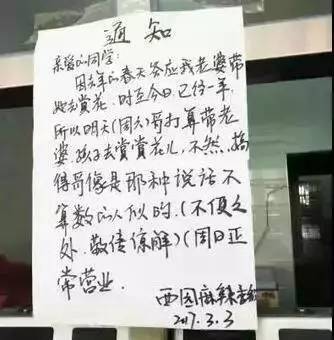 通知
亲爱的同学:
因去年的春天答应我老婆带
她去赏花,时至今日已经一年,
所以明天(周六)哥打算带老
婆、孩子去赏赏花儿,不然,搞
得哥像是那种说话不
算数的人似的.(不便之
处,敬请谅解)(周日正
常营业.
西园麻辣香锅
2017.3.3